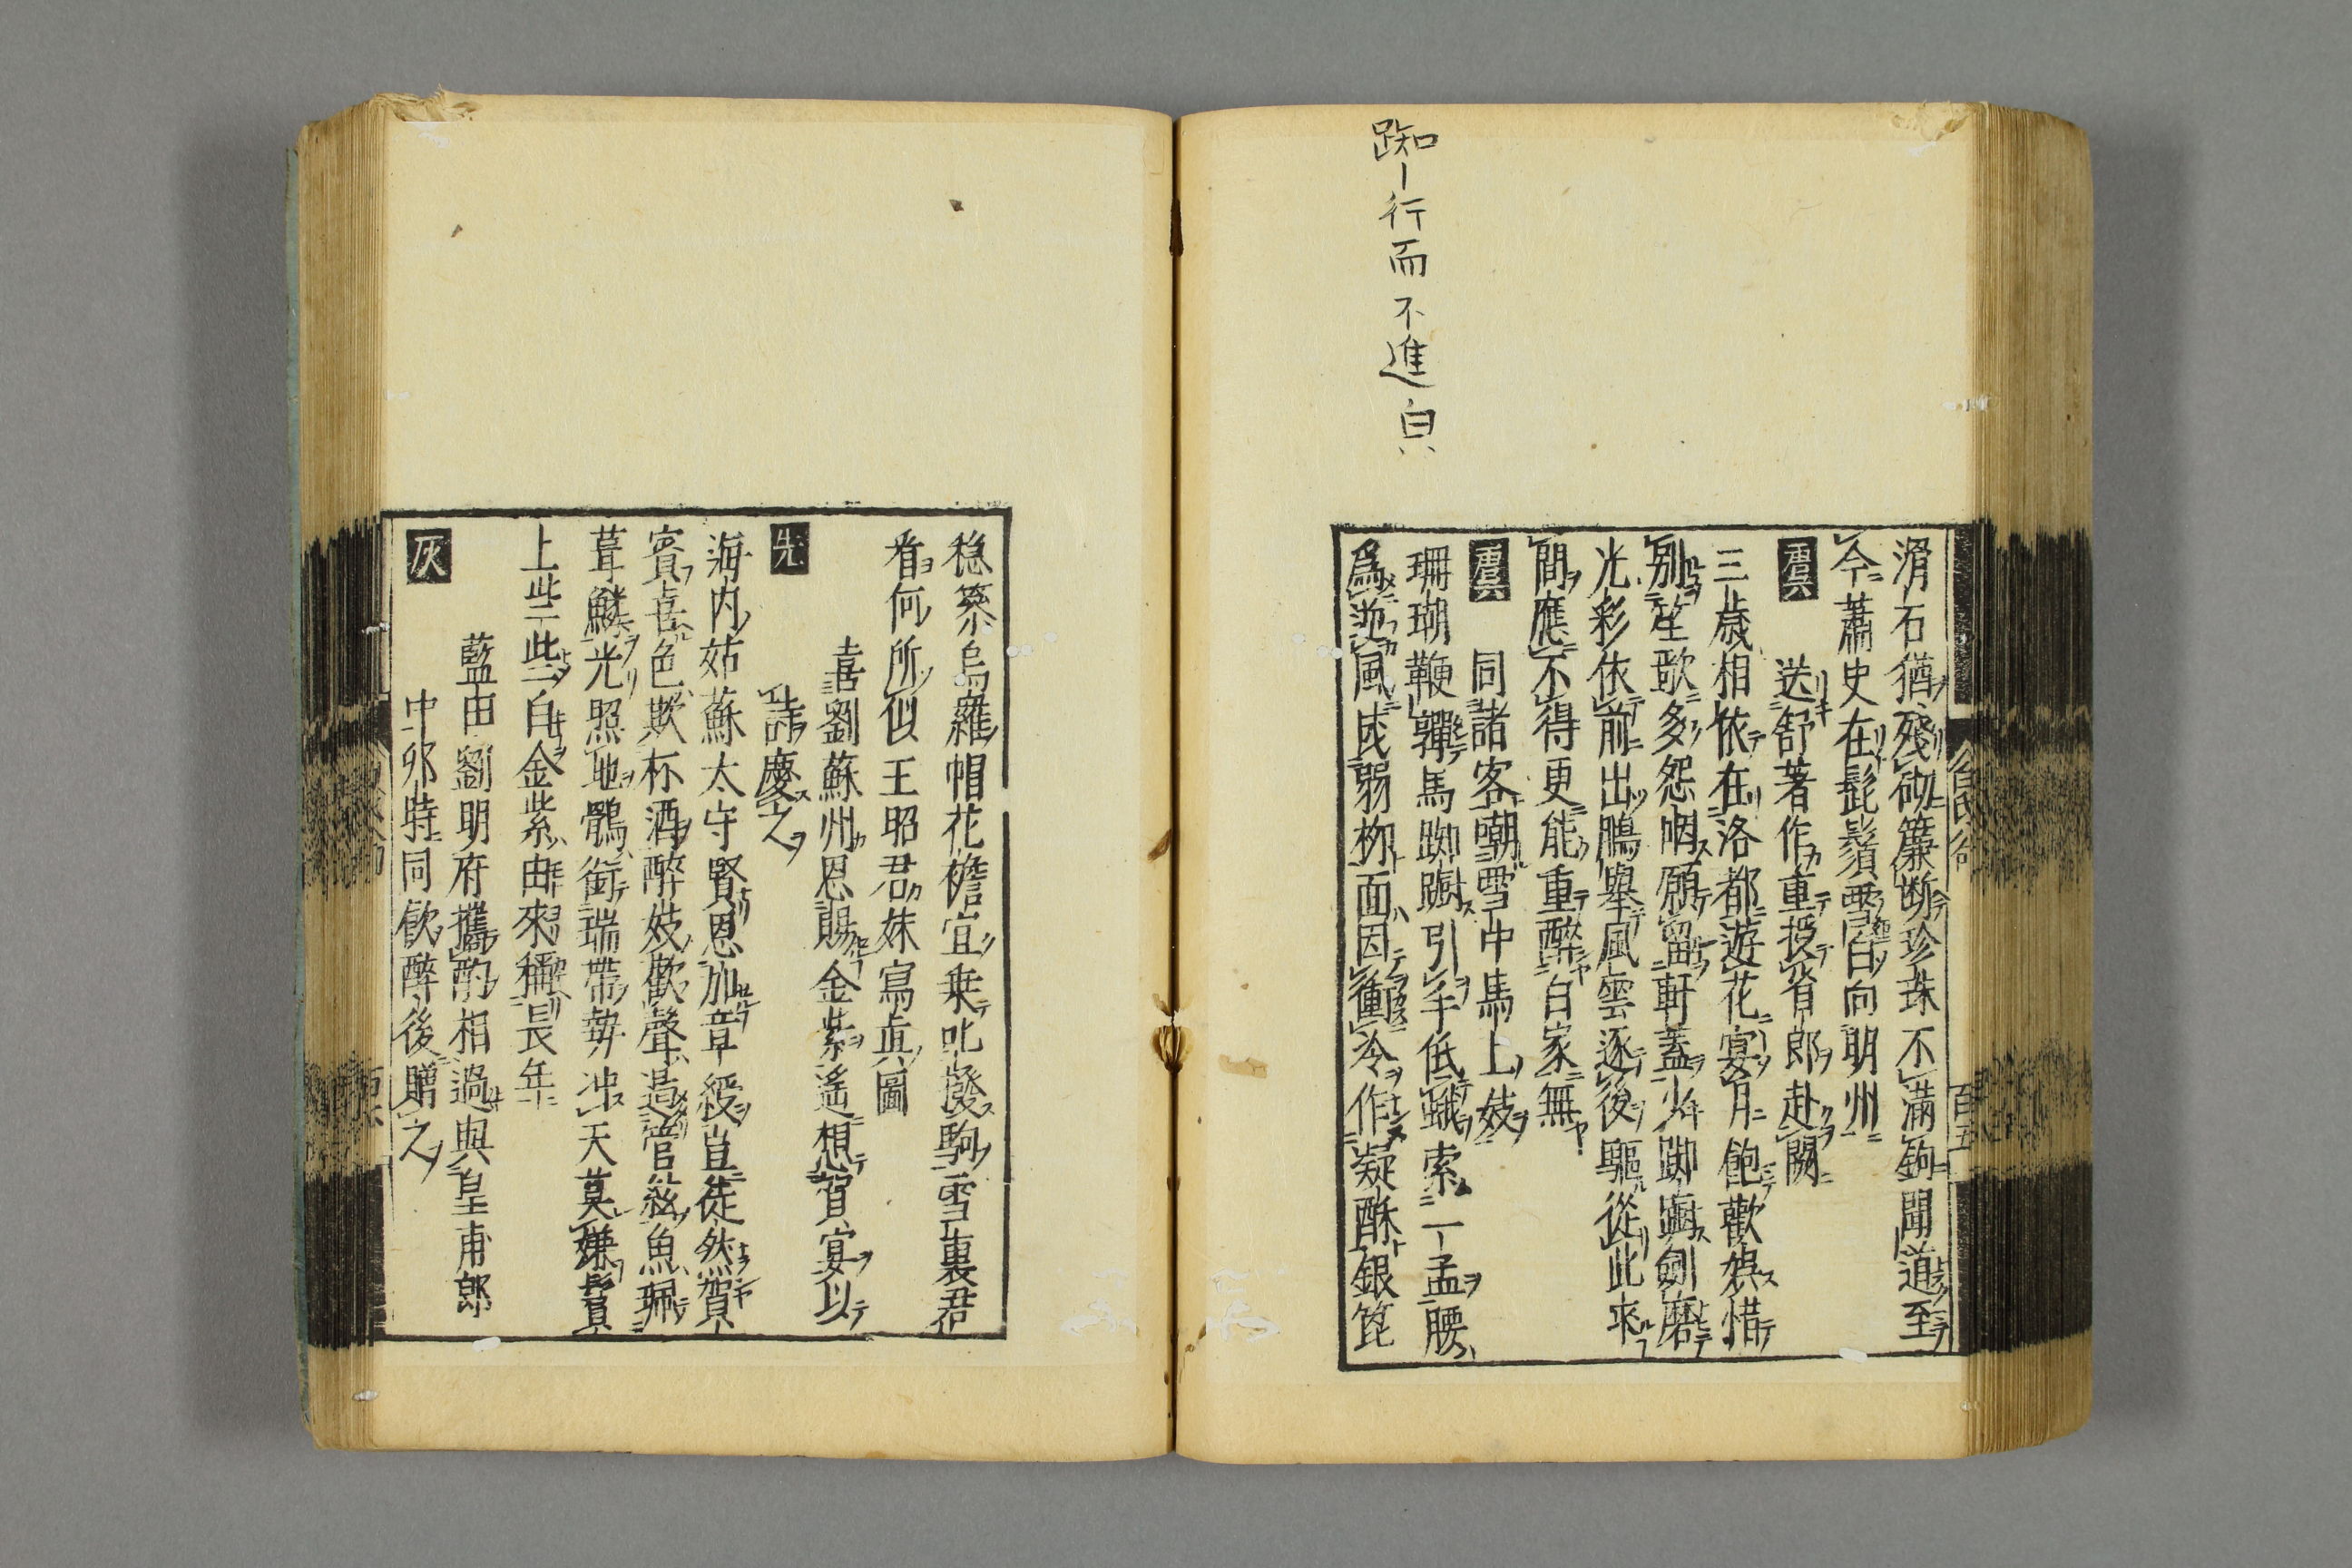 踟－行而不進㒵
滑石猶殘砌簾断珍珠不滿鉤聞道至
今蕭史在髭鬚雪白向明州
虞六　送舒著作重授省郎赴闕
三歳相依在洛都遊花宴月飽歡娯惜
別笙歌多怨咽願留軒蓋少踟蹰劍磨
光彩依前出鵬舉風雲逐後驅從此來
間應不得更能重醉白家無
虞六　同諸客嘲雪中馬上妓
珊瑚鞭嚲馬踟蹰引手低蛾索一盂腰
爲逆風成弱柳面因衝冷作凝酥銀箆
穏篸烏羅帽花襜宜乗叱撥駒雪裏君
看何所似王昭君妹寫眞圖
喜劉蘇州恩賜金紫遥想賀宴以
先　詩慶之
海内姑蘇太守賢恩加章綬豈徒然賀
賓喜色欺杯酒醉妓歡聲遏管絃魚珮
葺鱗光照地鶻銜瑞帶勢冲天莫嫌鬢
上些些白金紫由來稱長年
藍田劉明府攜酌相過與皇甫郎
灰　中卯時同飲醉後贈之
百五